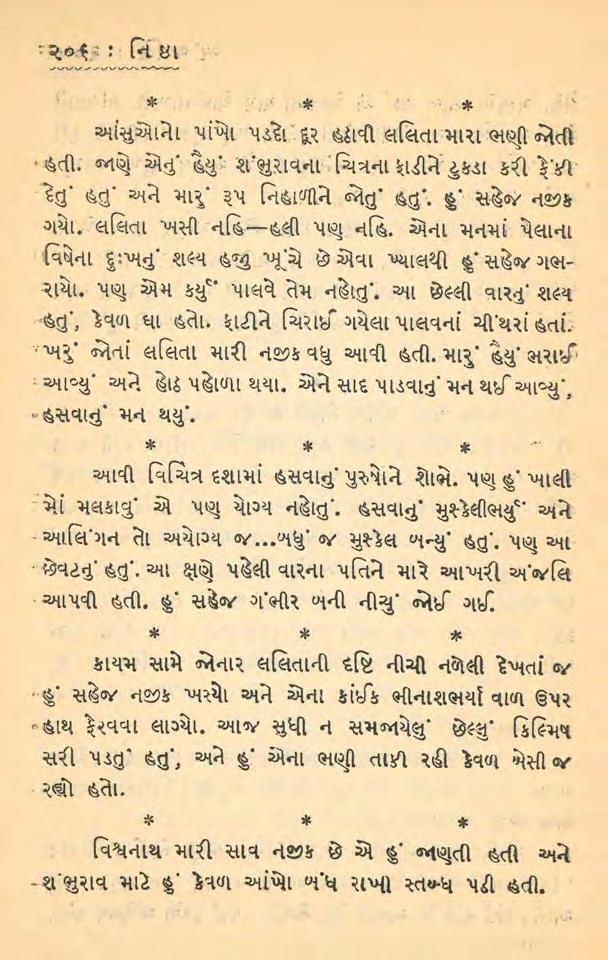 ૨૦૬ : નિષ્ઠા
* * *
આંસુઓનો પાંખો પડદો દૂર હઠાવી લલિતા મારા ભણી જોતી
હતી. જાણે એનું હૈયું શંભુરાવના ચિત્રના ફાડીને ટુકડા કરી ફેંકી
દેતું હતું અને મારું રૂપ નિહાળીને જોતું હતું. હું સહેજ નજીક
ગયો. લલિતા ખસી નહિ—હલી પણ નહિ. એના મનમાં પેલાના
વિષેના દુઃખનું શલ્ય હજી ખૂંચે છે એવા ખ્યાલથી હું સહેજ ગભ-
રાયો. પણ એમ કર્યું પાલવે તેમ નહોતું. આ છેલ્લી વારનું શલ્ય
હતું, કેવળ ઘા હતો. ફાટીને ચિરાઈ ગયેલા પાલવનાં ચીંથરાં હતાં.
ખરું જોતાં લલિતા મારી નજીક વધુ આવી હતી. મારું હૈયું ભરાઈ
આવ્યું અને હોઠ પહોળા થયા. એને સાદ પાડવાનું મન થઈ આવ્યું,
હસવાનું મન થયું.
* * *
આવી વિચિત્ર દશામાં હસવાનું પુરુષોને શોભે. પણ હું ખાલી
મોં મલકાવું એ પણ યોગ્ય નહોતું. હસવાનું મુશ્કેલીભર્યું અને
આલિંગન તો અયોગ્ય જ...બધું જ મુશ્કેલ બન્યું હતું. પણ આ
છેવટનું હતું. આ ક્ષણે પહેલી વારના પતિને મારે આખરી અંજલિ
આપવી હતી. હું સહેજ ગંભીર બની નીચું જોઈ ગઈ.
* * *
કાયમ સામે જોનાર લલિતાની દૃષ્ટિ નીચી નળેલી દેખતાં જ
હું સહેજ નજીક ખસ્યો અને એના કાંઈક ભીનાશભર્યા વાળ ઉપર
હાથ ફેરવવા લાગ્યો. આજ સુધી ન સમજાયેલું છેલ્લું કિલ્મિષ
સરી પડતું હતું, અને હું એના ભણી તાકી રહી કેવળ બેસી જ
રહ્યો હતો.
* * *
વિશ્વનાથ મારી સાવ નજીક છે એ હું જાણતી હતી અને
શંભુરાવ માટે હું કેવળ આંખો બંધ રાખી સ્તબ્ધ પડી હતી.